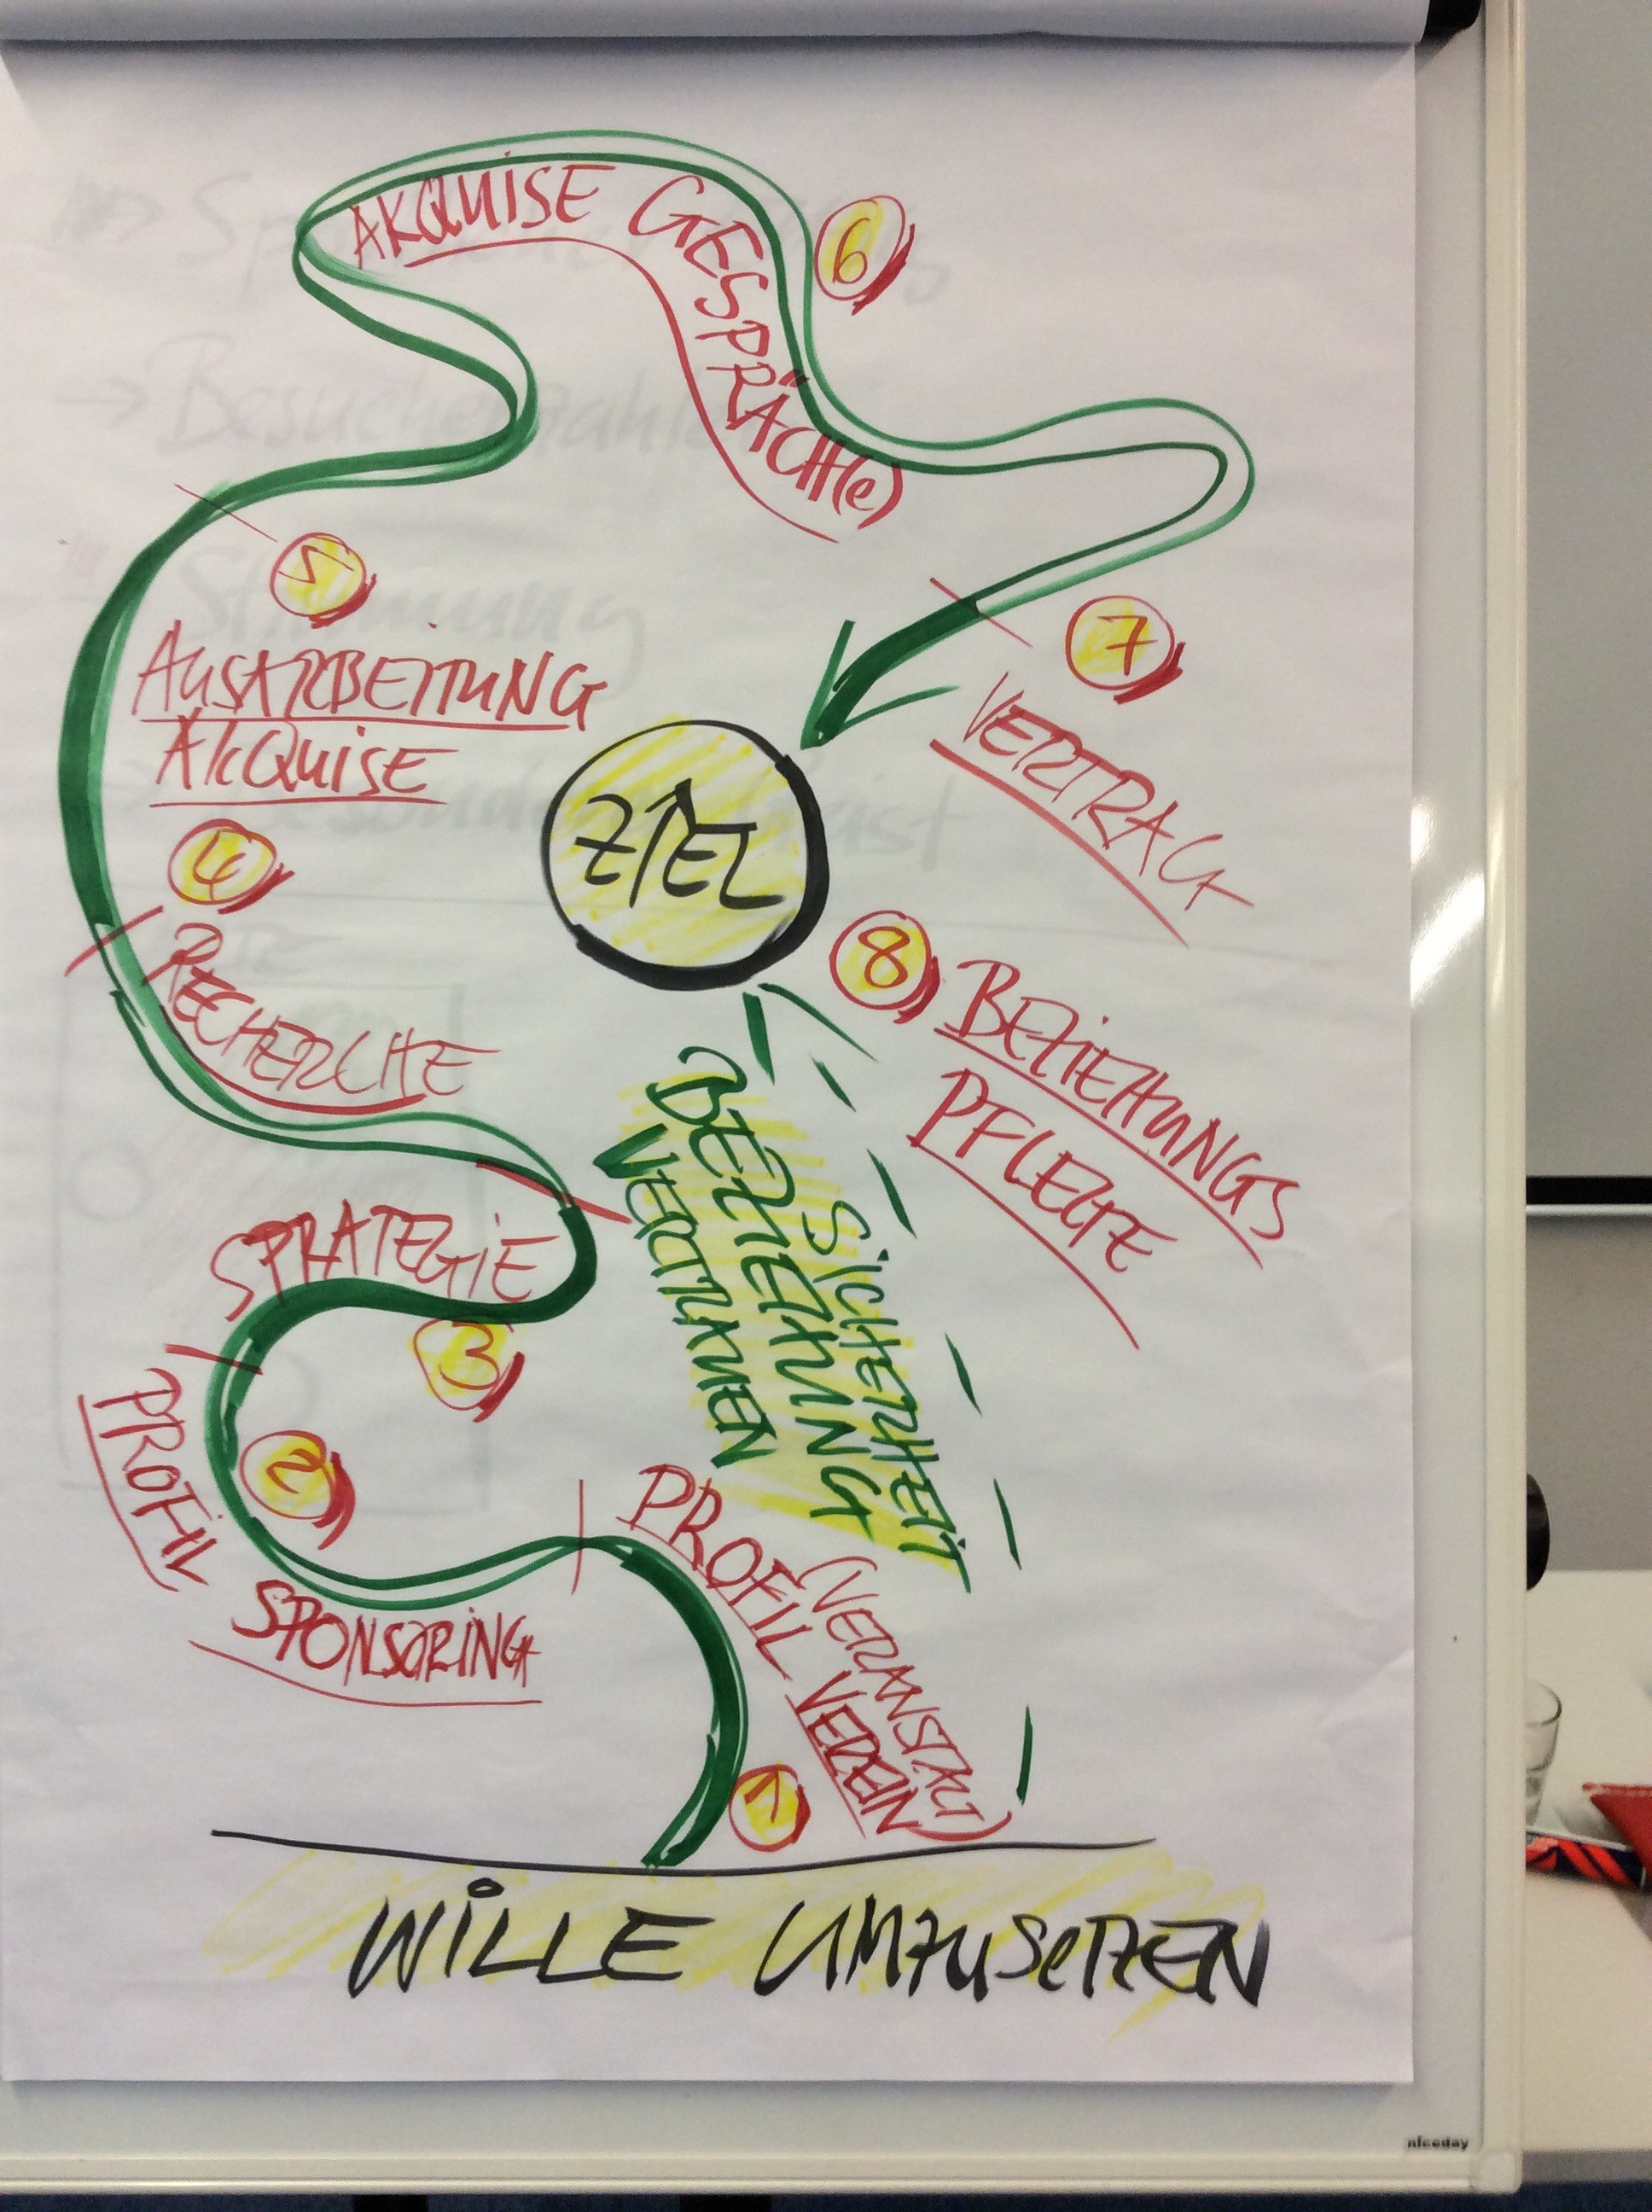 AKQUISE GESPRÄCH(e)
6
5
AUSARBEITUNG
AKQUISE
7
VERTRAG
ZIEL
4
RECHERCHE
8
BEZIEHUNGS
PFLEGE
BEZIEHUNG
VERTRAUEN
SICHERHEIT
STRATEGIE
3
PROFIL
SPONSORING
2
PROFIL VEREIN
(VERANSTALT)
1
WILLE UMZUSETZEN
niceday